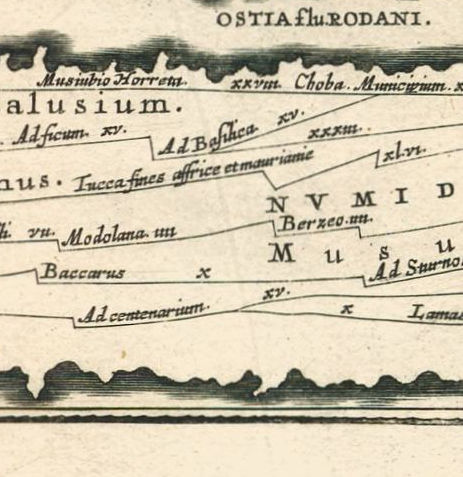 OSTIA flu. RODANI.
Musiubio Horreta. xxviii Choba. Municipium. x
alusium.
Ad ficum. xv. Ad Basilica xv. xxxiii.
nus. Tucca fines affrice et maurianie xl.vi.
NVMID
vii. Modolana. iiii Berzeo. iiii.
Musu
Baccarus x Ad Sturno
Ad centenarium. xv. x Lamas